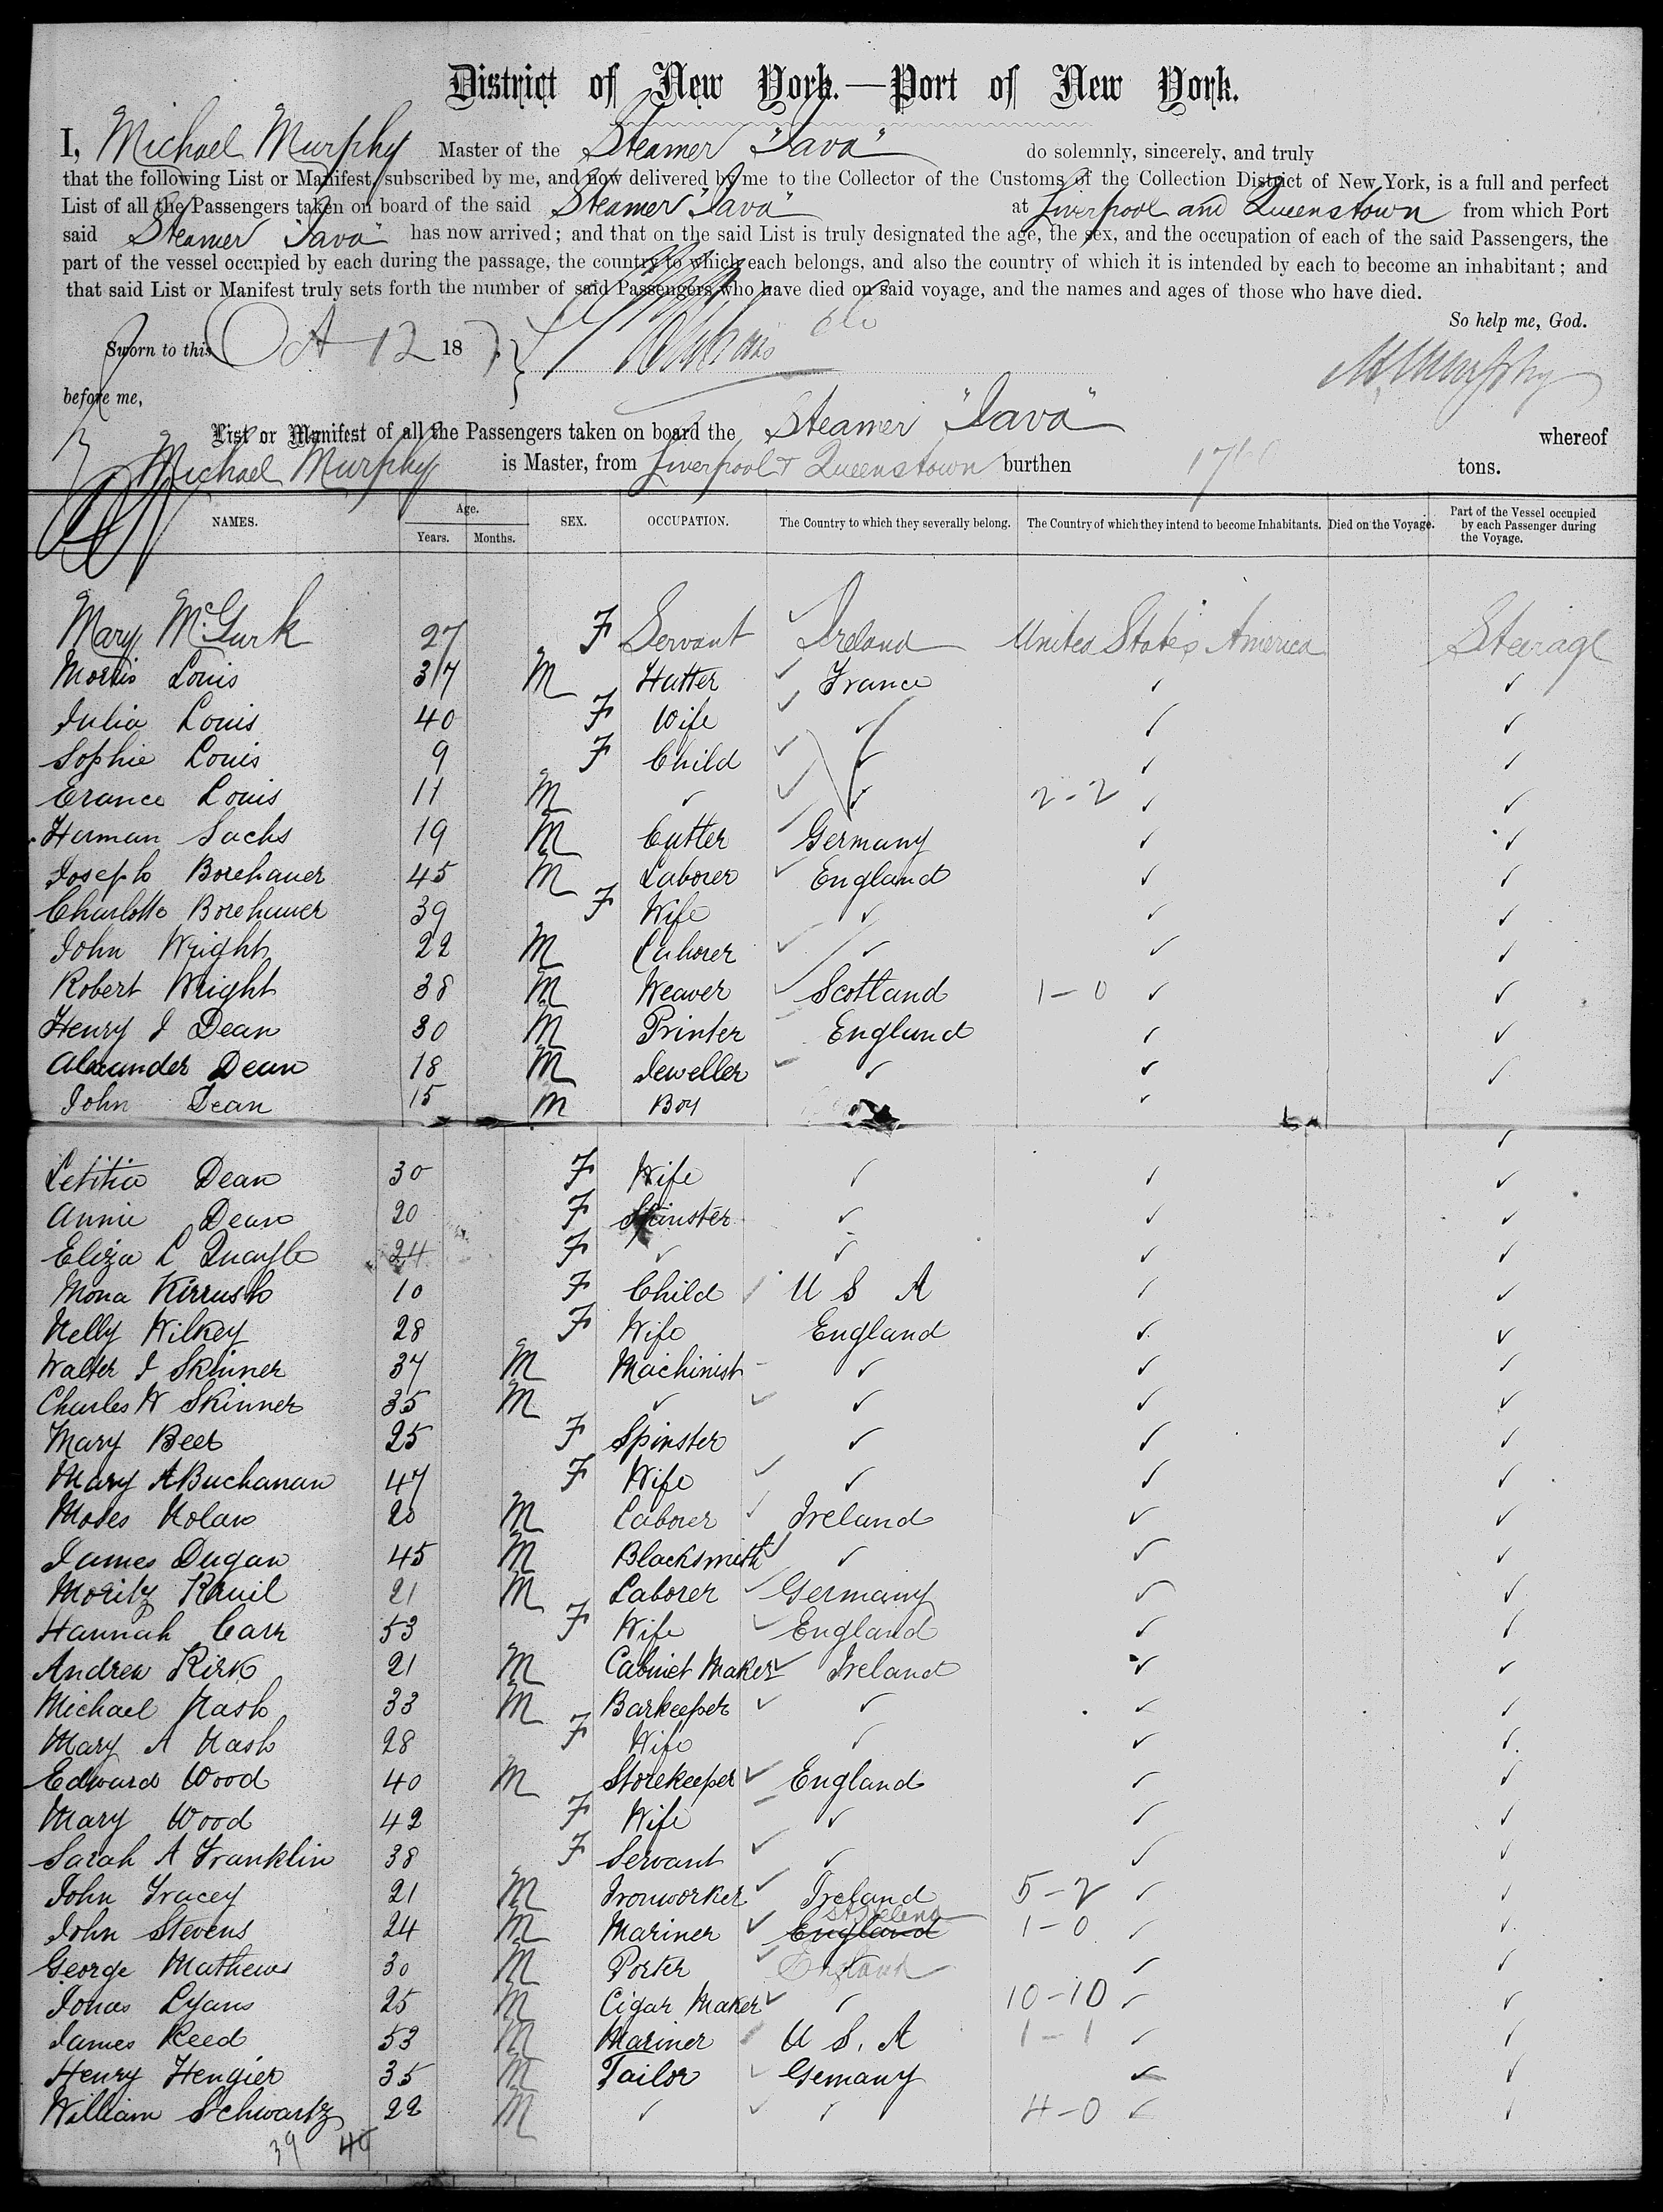 District of New York.—Port of New York.
I, Michael Murphy Master of the Steamer "Java" do solemnly, sincerely, and truly
that the following List or Manifest, subscribed by me, and now delivered by me to the Collector of the Customs of the Collection District of New York, is a full and perfect
List of all the Passengers taken on board of the said Steamer "Java" at Liverpool and Queenstown from which Port
said Steamer "Java" has now arrived; and that on the said List is truly designated the age, the sex, and the occupation of each of the said Passengers, the
part of the vessel occupied by each during the passage, the country to which each belongs, and also the country of which it is intended by each to become an inhabitant; and
that said List or Manifest truly sets forth the number of said Passengers who have died on said voyage, and the names and ages of those who have died.
So help me, God.
Sworn to this Oct 12 18 M. Murphy
before me,
List or Manifest of all the Passengers taken on board the Steamer "Java" whereof
Michael Murphy is Master, from Liverpool & Queenstown burthen tons.
NAMES. Age. Years. Months. SEX. OCCUPATION. The Country to which they severally belong. The Country of which they intend to become Inhabitants. Died on the Voyage. Part of the Vessel occupied by each Passenger during the Voyage.
Mary McGurk 27 F Servant ✓ Ireland United States America Stearage
Morris Louis 37 M Hatter ✓ France ✓ ✓
Julia Louis 40 F Wife ✓ ✓ ✓ ✓
Sophie Louis 9 F Child ✓ ✓ ✓ ✓
Erance Louis 11 M ✓ ✓ ✓ 2-2 ✓ ✓
Herman Sachs 19 M Cutter ✓ Germany ✓ ✓
Joseph Borehauer 45 M Laborer ✓ England ✓ ✓
Charlotte Borehauer 39 F Wife ✓ ✓ ✓
John Wright 22 M Laborer ✓ ✓ ✓ ✓
Robert Wright 38 M Weaver ✓ Scotland 1-0 ✓ ✓
Henry J Dean 30 M Printer England ✓ ✓
Alexander Dean 18 M Jeweller ✓ ✓ ✓ ✓
John Dean 15 M Boy ✓ ✓
Letitia Dean 30 F Wife ✓ ✓ ✓
Annie Dean 20 F Spinster ✓ ✓ ✓
Eliza L Quayle 24 F ✓ ✓ ✓ ✓
Mona Kirrush 10 F Child ✓ U S A ✓ ✓
Nelly Wilkey 28 F Wife England ✓ ✓
Walter J Skinner 37 M Machinist - ✓ ✓ ✓
Charles W Skinner 35 M ✓ ✓ ✓ ✓ ✓
Mary Beer 25 F Spinster ✓ ✓ ✓
Mary A Buchanan 47 F Wife ✓ ✓ ✓ ✓
Moses Nolan 20 M Laborer ✓ Ireland ✓ ✓
James Dugan 45 M Blacksmith ✓ ✓ ✓ ✓
Moritz 21 M Laborer ✓ Germany ✓ ✓
Hannah Carr 53 F Wife ✓ England ✓ ✓
Andrew Kirk 21 M Cabinet Maker ✓ Ireland ✓ ✓
Michael Nash 33 M Barkeeper ✓ ✓ ✓ ✓
Mary A Nash 28 F Wife ✓ ✓ ✓
Edward Wood 40 M Storekeeper ✓ England ✓ ✓
Mary Wood 42 F Wife ✓ ✓ ✓
Sarah A Franklin 38 F Servant ✓ ✓ ✓ ✓
John Tracey 21 M Ironworker ✓ Ireland 5-2 ✓ ✓
John Stevens 24 M Mariner ✓ England St Helena 1-0 ✓ ✓
George Mathews 30 M Porter ✓ England ✓ ✓
Jonas Lyans 25 M Cigar Maker ✓ ✓ 10-10 ✓ ✓
James Reed 53 M Mariner ✓ U S. A 1-1 ✓ ✓
Henry Hengier 35 M Tailor ✓ Gemany ✓ ✓
William Schwartz 22 M ✓ ✓ ✓ 4-0 ✓ ✓
39 40